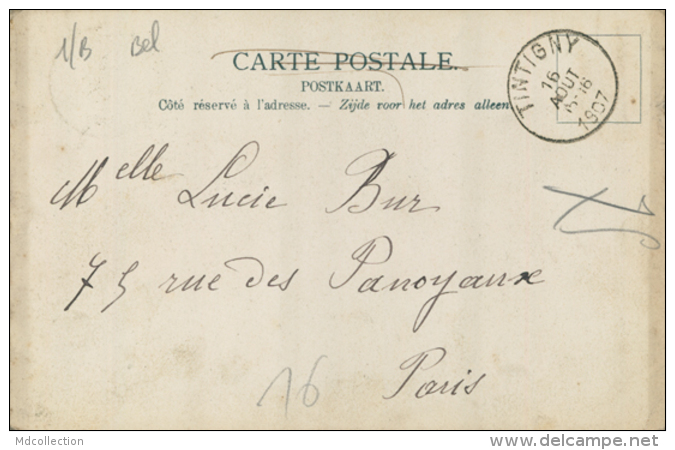 1/B Bel
CARTE POSTALE.
POSTKAART.
Côté réservé à l'adresse. — Zijde voor het adres alleen
TINTIGNY
16
AOUT
15-16
1907
Melle Lucie Bur
75 rue des Panoyaux
Paris
16
Mdcollection
www.delcampe.net